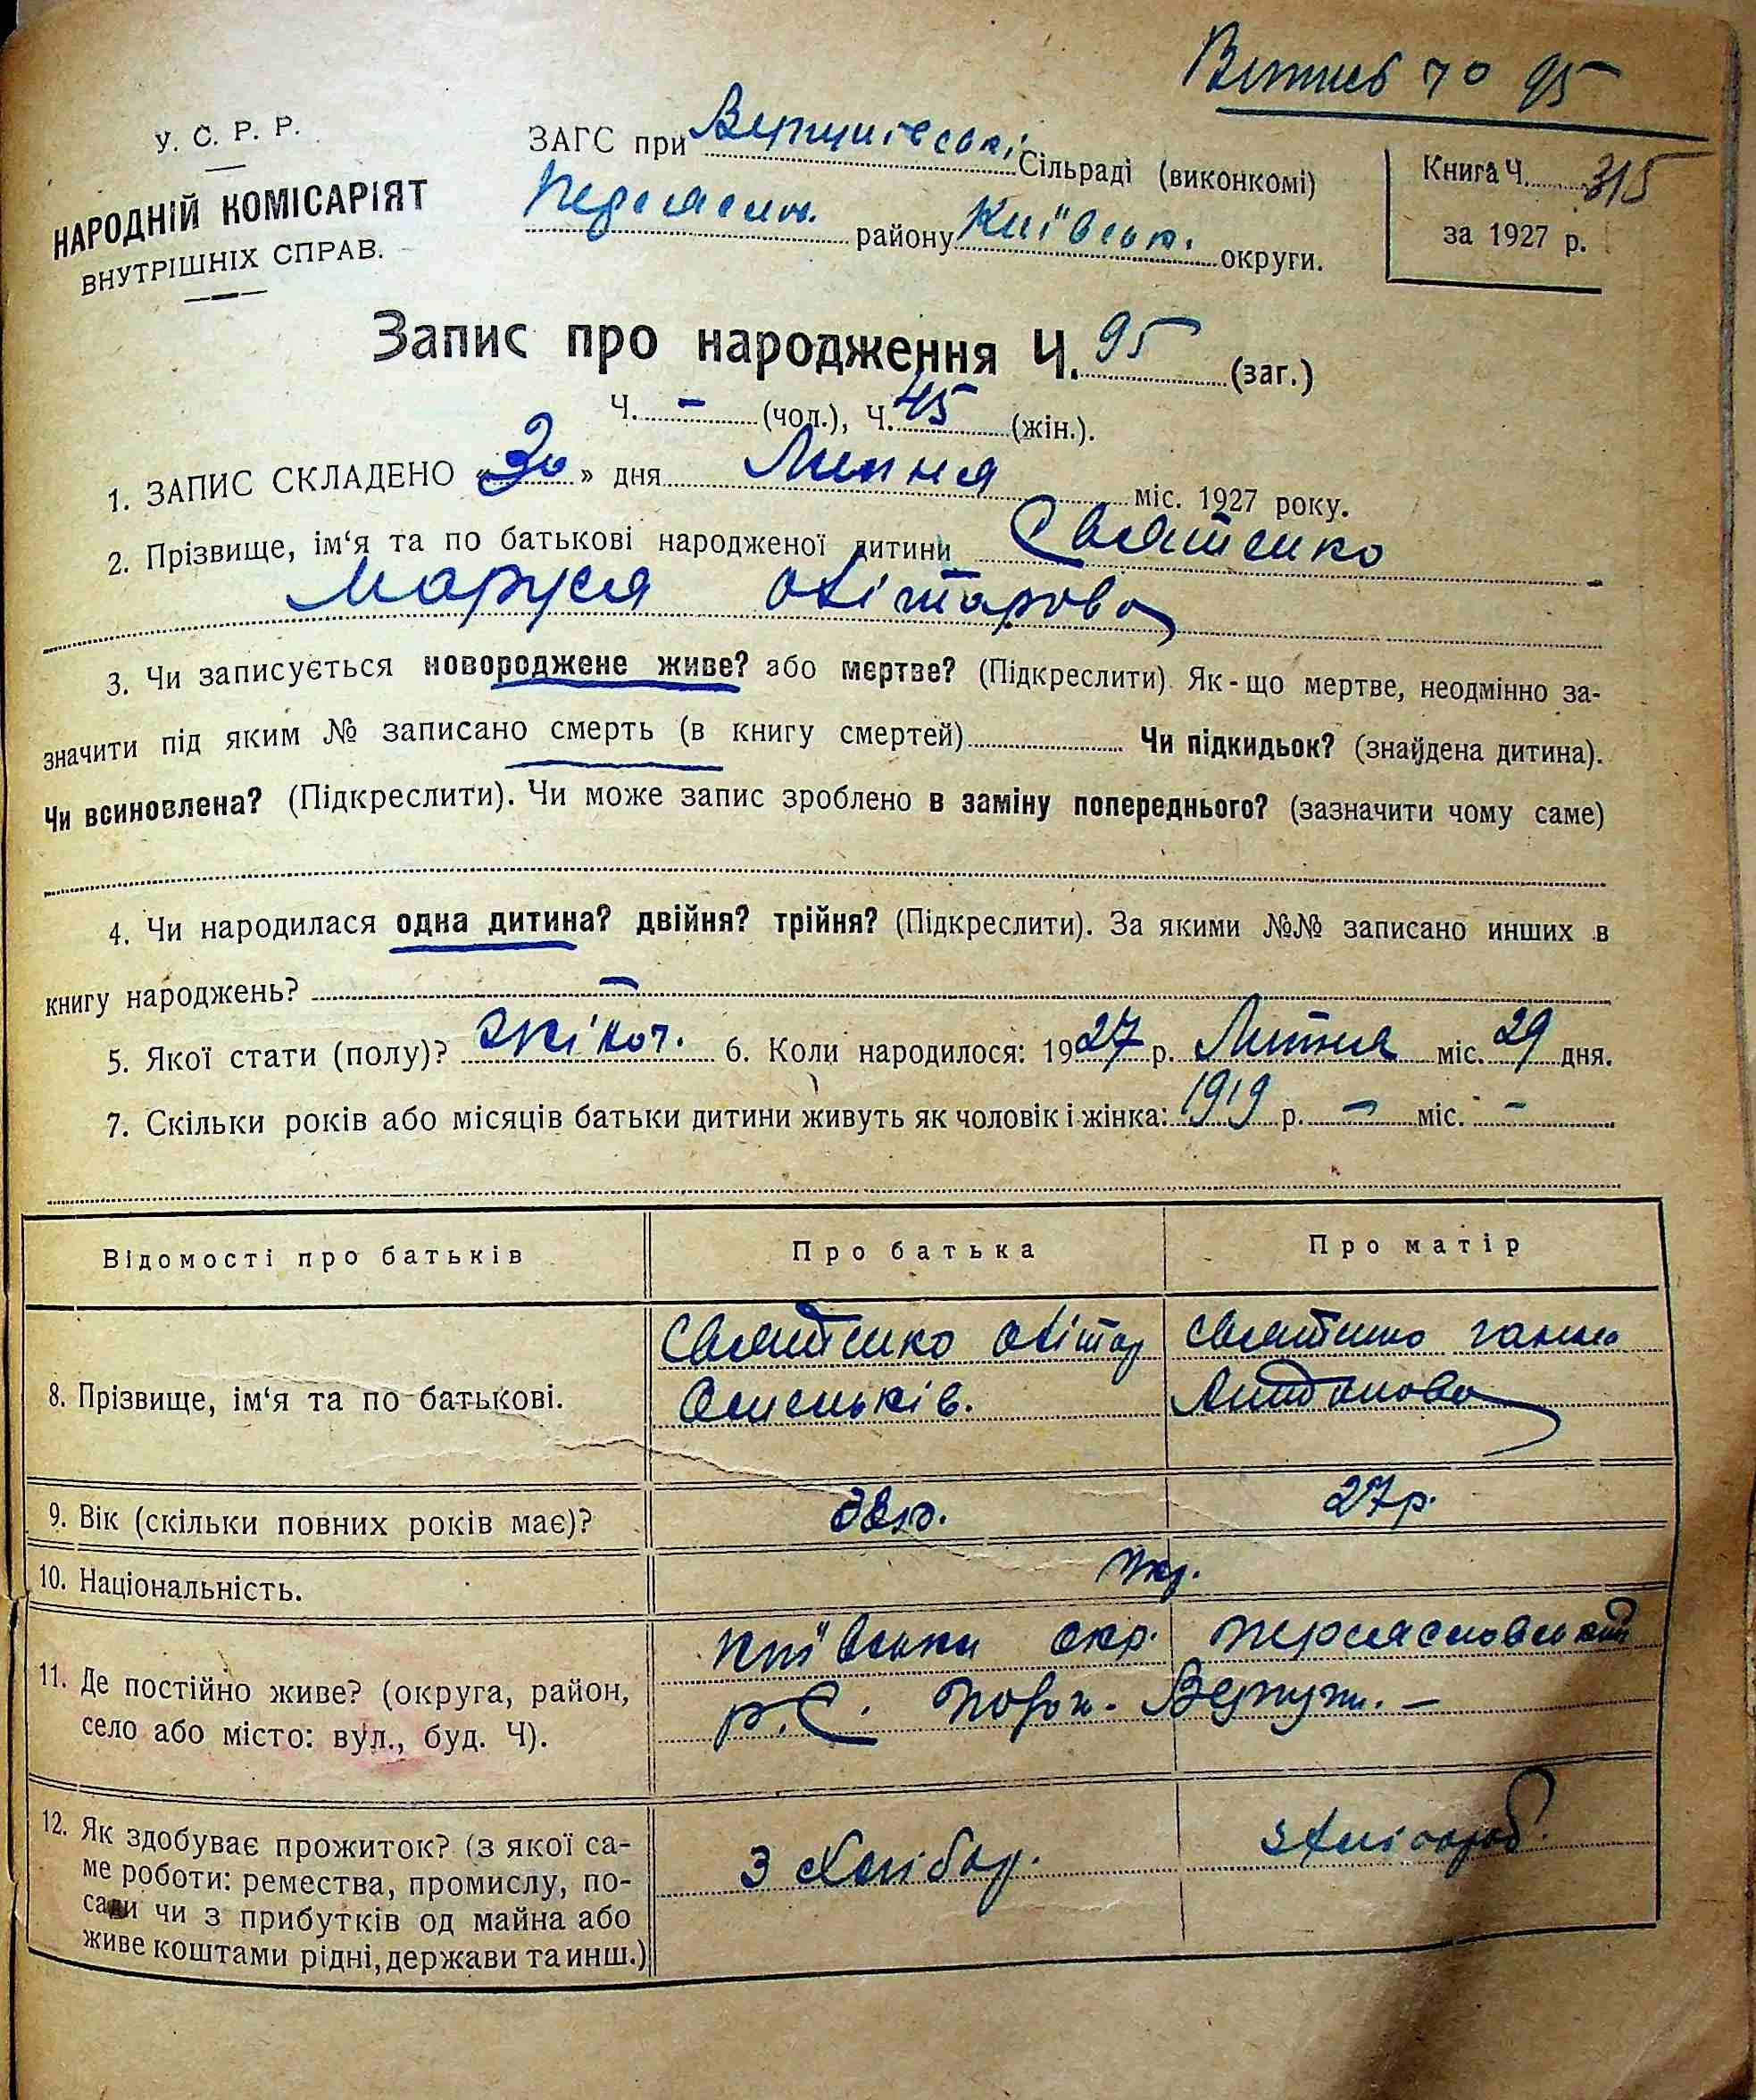 У. С. Р. Р.
НАРОДНІЙ КОМІСАРІЯТ
ВНУТРІШНІХ СПРАВ.
ЗАГС при Сільраді (виконкомі)
району Київськ. округи.
Книга Ч. 315
за 1927 р.
Запис про народження Ч. 95 (заг.)
Ч. – (чол.), Ч. 45 (жін.).
1. ЗАПИС СКЛАДЕНО «30» дня Липня міс. 1927 року.
2. Прізвище, ім‘я та по батькові народженої дитини Святенко
Маруся
3. Чи записується новороджене живе? або мертве? (Підкреслити). Як-що мертве, неодмінно за-
значити під яким № записано смерть (в книгу смертей) Чи підкидьок? (знайдена дитина).
Чи всиновлена? (Підкреслити). Чи може запис зроблено в заміну попереднього? (зазначити чому саме)
4. Чи народилася одна дитина? двійня? трійня? (Підкреслити). За якими №№ записано инших в
книгу народжень? –
5. Якої стати (полу)? жіноч. 6. Коли народилося: 1927 р. Липня міс. 29 дня.
7. Скільки років або місяців батьки дитини живуть як чоловік і жінка: 1919 р. – міс. –
Відомості про батьків Про батька Про матір
8. Прізвище, ім‘я та по батькові.
Святенко
Святенко Ганна
9. Вік (скільки повних років має)? 27р.
10. Національність. Укр.
11. Де постійно живе? (округа, район,
село або місто: вул., буд. Ч).
Київська окр. Переяславський
р. С.
12. Як здобуває прожиток? (з якої са-
ме роботи: ремества, промислу, по-
сади чи з прибутків од майна або
живе коштами рідні, держави та инш.)
З хлібор.